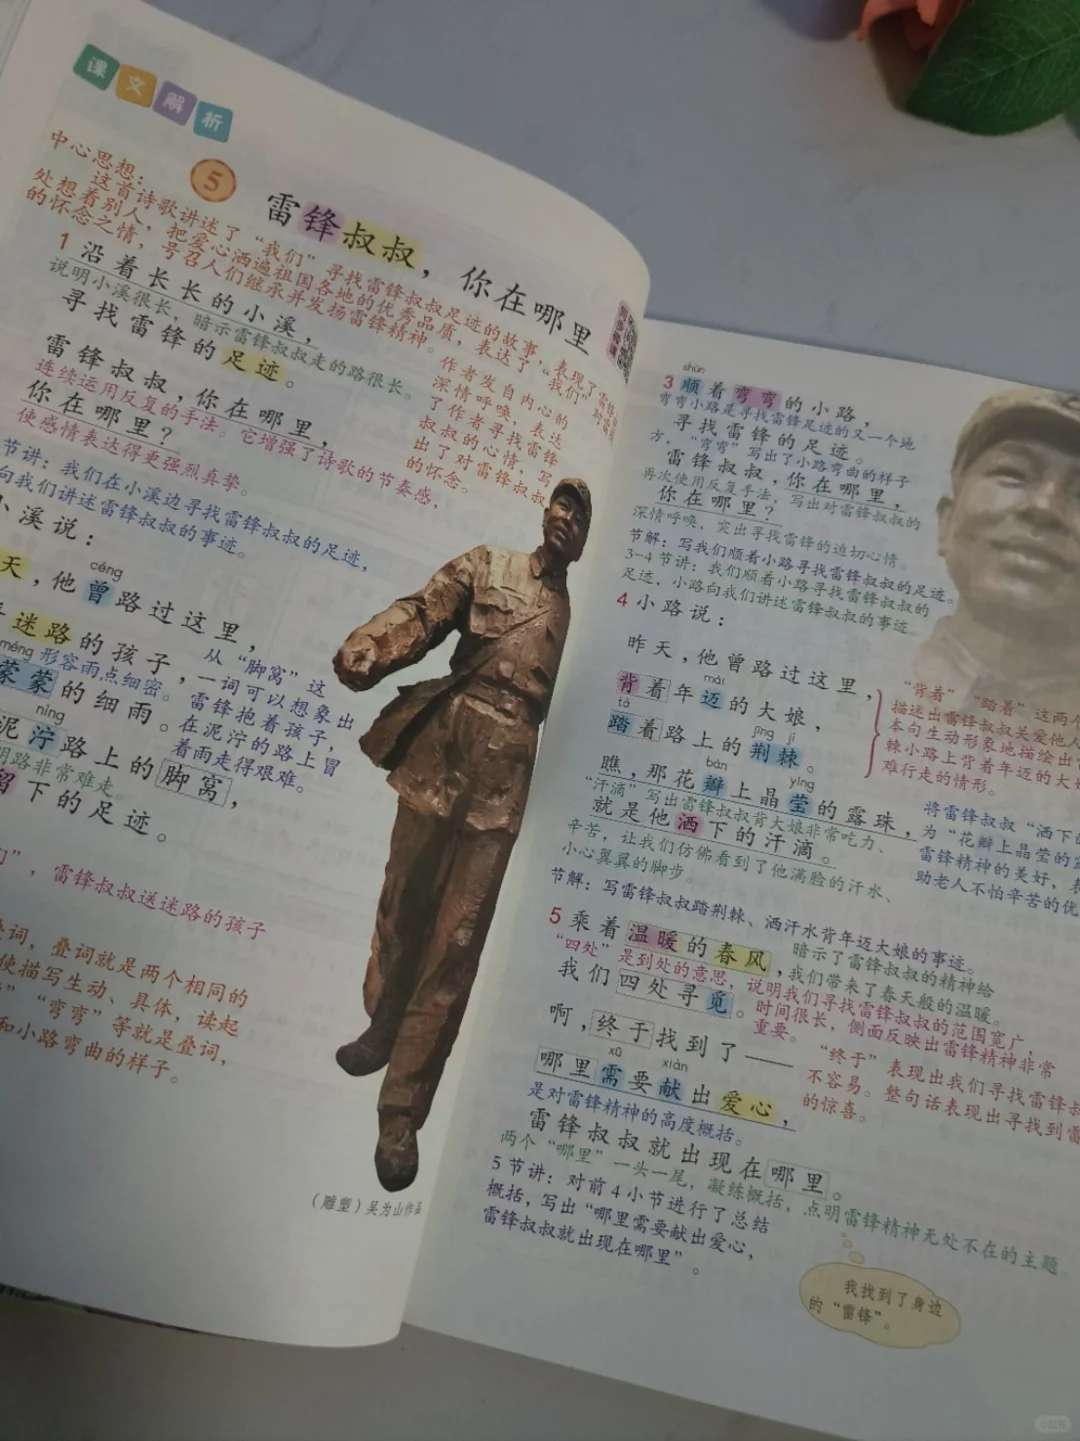 课文解析
中心思想：
这首诗歌讲述了“我们”寻找雷锋叔叔足迹的故事，表现了雷锋
处想着别人，把爱心洒遍祖国各地的优秀品质，表达了“我们”
的怀念之情，号召人们继承并发扬雷锋精神。
5
雷锋叔叔，你在哪里
1 沿着长长的小溪，
说明小溪很长，暗示雷锋叔叔走的路很长。
寻找雷锋的足迹。
雷锋叔叔，你在哪里，
连续运用反复的手法。它增强了诗歌的节奏感，
你在哪里？
使感情表达得更强烈真挚。
作者发自内心的
深情呼唤，表达
了作者寻找雷锋
叔叔的心情，写
出了对雷锋叔叔
的怀念。
节讲：我们在小溪边寻找雷锋叔叔的足迹，
向我们讲述雷锋叔叔的事迹。
小溪说：
céng
天，他曾路过这里，
迷路的孩子，
méng 形容雨点细密。
蒙蒙的细雨。
从“脚窝”这
一词可以想象出
雷锋抱着孩子，
在泥泞的路上冒
着雨走得艰难。
nìng
泥泞路上的脚窝，
明路非常难走。
留下的足迹。
们”，雷锋叔叔送迷路的孩子
叠词，叠词就是两个相同的
使描写生动、具体，读起
”“弯弯”等就是叠词，
和小路弯曲的样子。
（雕塑）吴为山作品
shùn
3 顺着弯弯的小路，
弯弯小路是寻找雷锋足迹的又一个地
寻找雷锋的足迹。
方，“弯弯”写出了小路弯曲的样子
雷锋叔叔，你在哪里，
再次使用反复手法，写出对雷锋叔叔的
你在哪里？
深情呼唤，突出寻找雷锋的迫切心情。
节解：写我们顺着小路寻找雷锋叔叔的足迹。
3-4 节讲：我们顺着小路寻找雷锋叔叔的
足迹，小路向我们讲述雷锋叔叔的事迹。
4 小路说：
昨天，他曾路过这里，
mài
背着年迈的大娘，
tà jīng jí
踏着路上的荆棘。
“背着”“踏着”这两个
描述出雷锋叔叔关爱他人
本句生动形象地描绘出
棘小路上背着年迈的大娘
难行走的情形。
bàn yíng
瞧，那花瓣上晶莹的露珠，
“汗滴”写出雷锋叔叔背大娘非常吃力、
就是他洒下的汗滴。
辛苦，让我们仿佛看到了他满脸的汗水、
小心翼翼的脚步。
将雷锋叔叔“洒下的
为“花瓣上晶莹的露
雷锋精神的美好，表
助老人不怕辛苦的优
节解：写雷锋叔叔踏荆棘、洒汗水背年迈大娘的事迹。
5 乘着温暖的春风，
暗示了雷锋叔叔的精神给
我们带来了春天般的温暖。
“四处”是到处的意思，说明我们寻找雷锋叔叔的范围宽广，
我们四处寻觅。
时间很长，侧面反映出雷锋精神非常
重要。
啊，终于找到了——
“终于”表现出我们寻找雷锋叔
不容易。整句话表现出寻找到雷
的惊喜。
xū xiàn
哪里需要献出爱心，
是对雷锋精神的高度概括。
雷锋叔叔就出现在哪里。
两个“哪里”一头一尾，凝练概括，点明雷锋精神无处不在的主题
5 节讲：对前 4 小节进行了总结
概括，写出“哪里需要献出爱心，
雷锋叔叔就出现在哪里”。
我找到了身边
的“雷锋”。
小红书